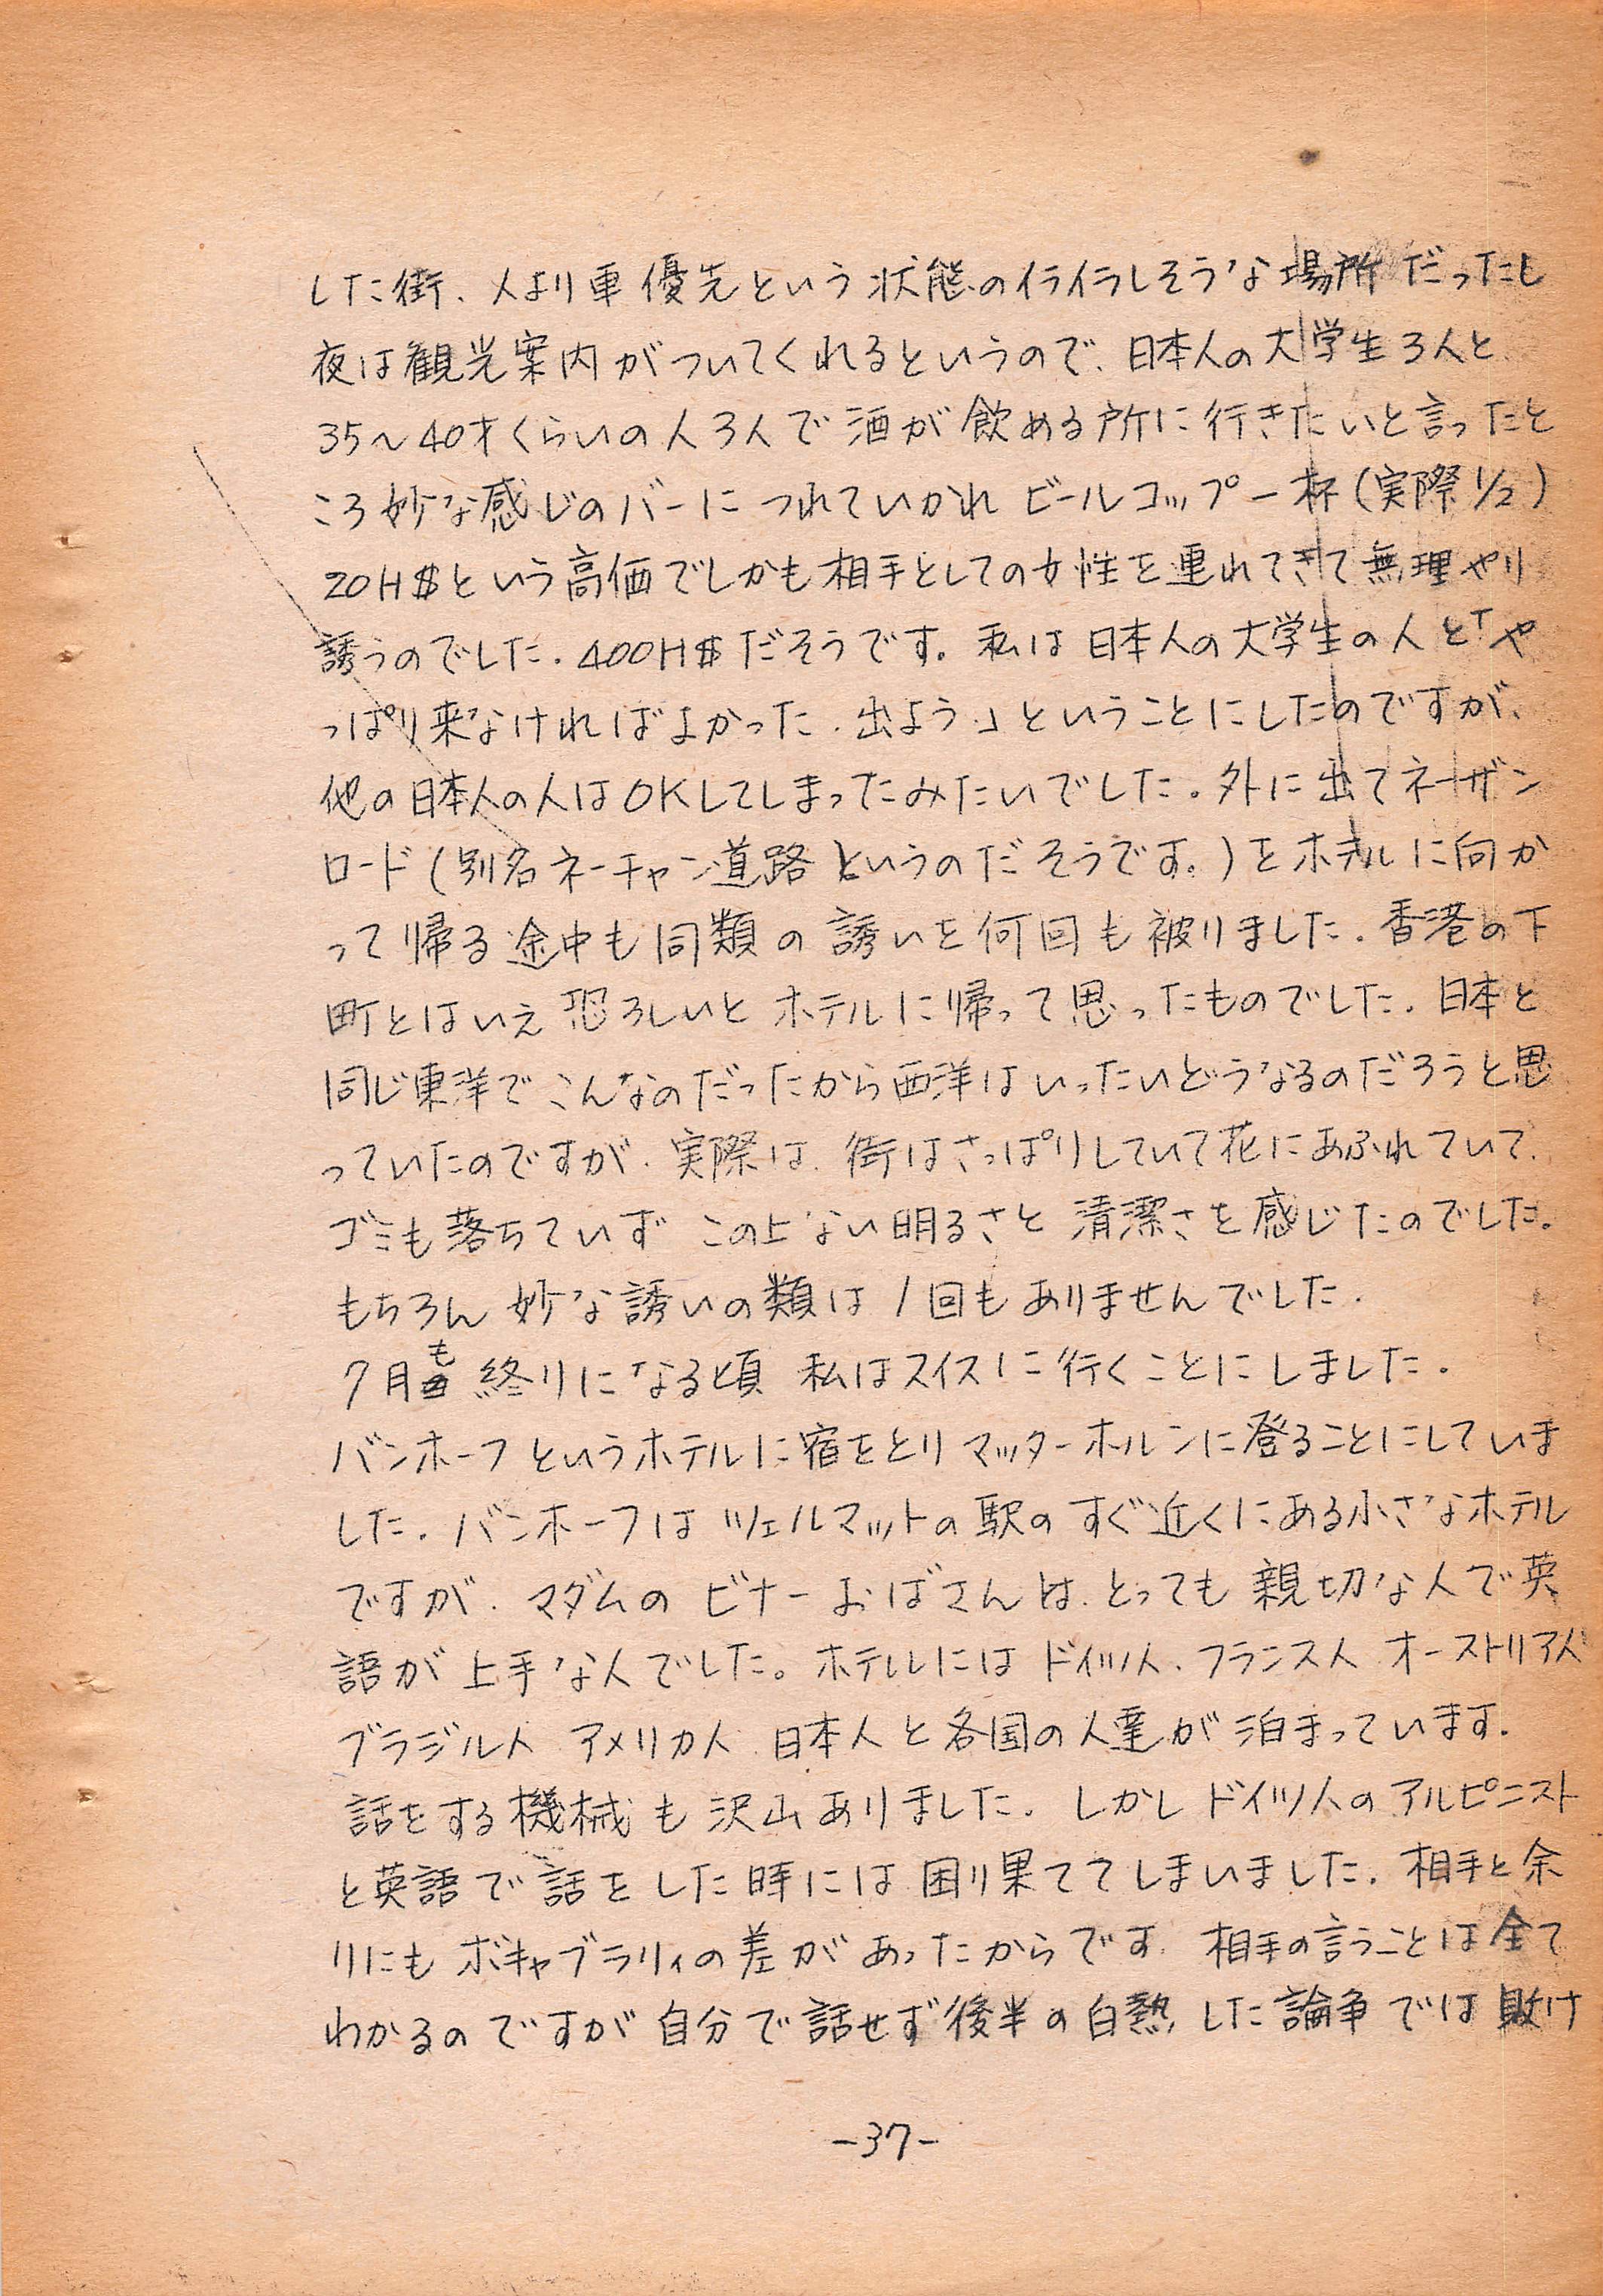 した街、人より車優先という状態のイライラしそうな場所だったし
夜は観光案内がついてくれるというので、日本人の大学生3人と
35〜40才くらいの人3人で酒が飲める所に行きたいと言ったと
ころ妙な感じのバーにつれていかれ ビールコップ一杯(実際1/2)
20H$という高価でしかも相手としての女性を連れてきて無理やり
誘うのでした.400H$だそうです。私は日本人の大学生の人と「や
っぱり来なければよかった.出よう.」ということにしたのですが、
他の日本人の人はOKしてしまったみたいでした。外に出てネーザン
ロード(別名ネーチャン道路というのだそうです。)をホテルに向か
って帰る途中も同類の誘いを何回も被りました.香港の下
町とはいえ恐ろしいとホテルに帰って思ったものでした.日本と
同じ東洋でこんなのだったから西洋はいったいどうなるのだろうと思
っていたのですが、実際は、街はさっぱりしていて花にあふれていて、
ゴミも落ちていず この上ない明るさと清潔さを感じたのでした。
もちろん妙な誘いの類は1回もありませんでした.
7月も終りになる頃 私はスイスに行くことにしました.
バンホーフというホテルに宿をとりマッターホルンに登ることにしていま
した.バンホーフはツェルマットの駅のすぐ近くにある小さなホテル
ですが、マダムのビナーおばさんは、とっても親切な人で英
語が上手な人でした。ホテルにはドイツ人、フランス人 オーストリア人
ブラジル人 アメリカ人 日本人と各国の人達が泊まっています.
話をする機械も沢山ありました.しかしドイツ人のアルピニスト
と英語で話をした時には困り果ててしまいました.相手と余
りにもボキャブラリィの差があったからです.相手の言うことは全て
わかるのですが自分で話せず後半の白熱した論争では敗け
-37-